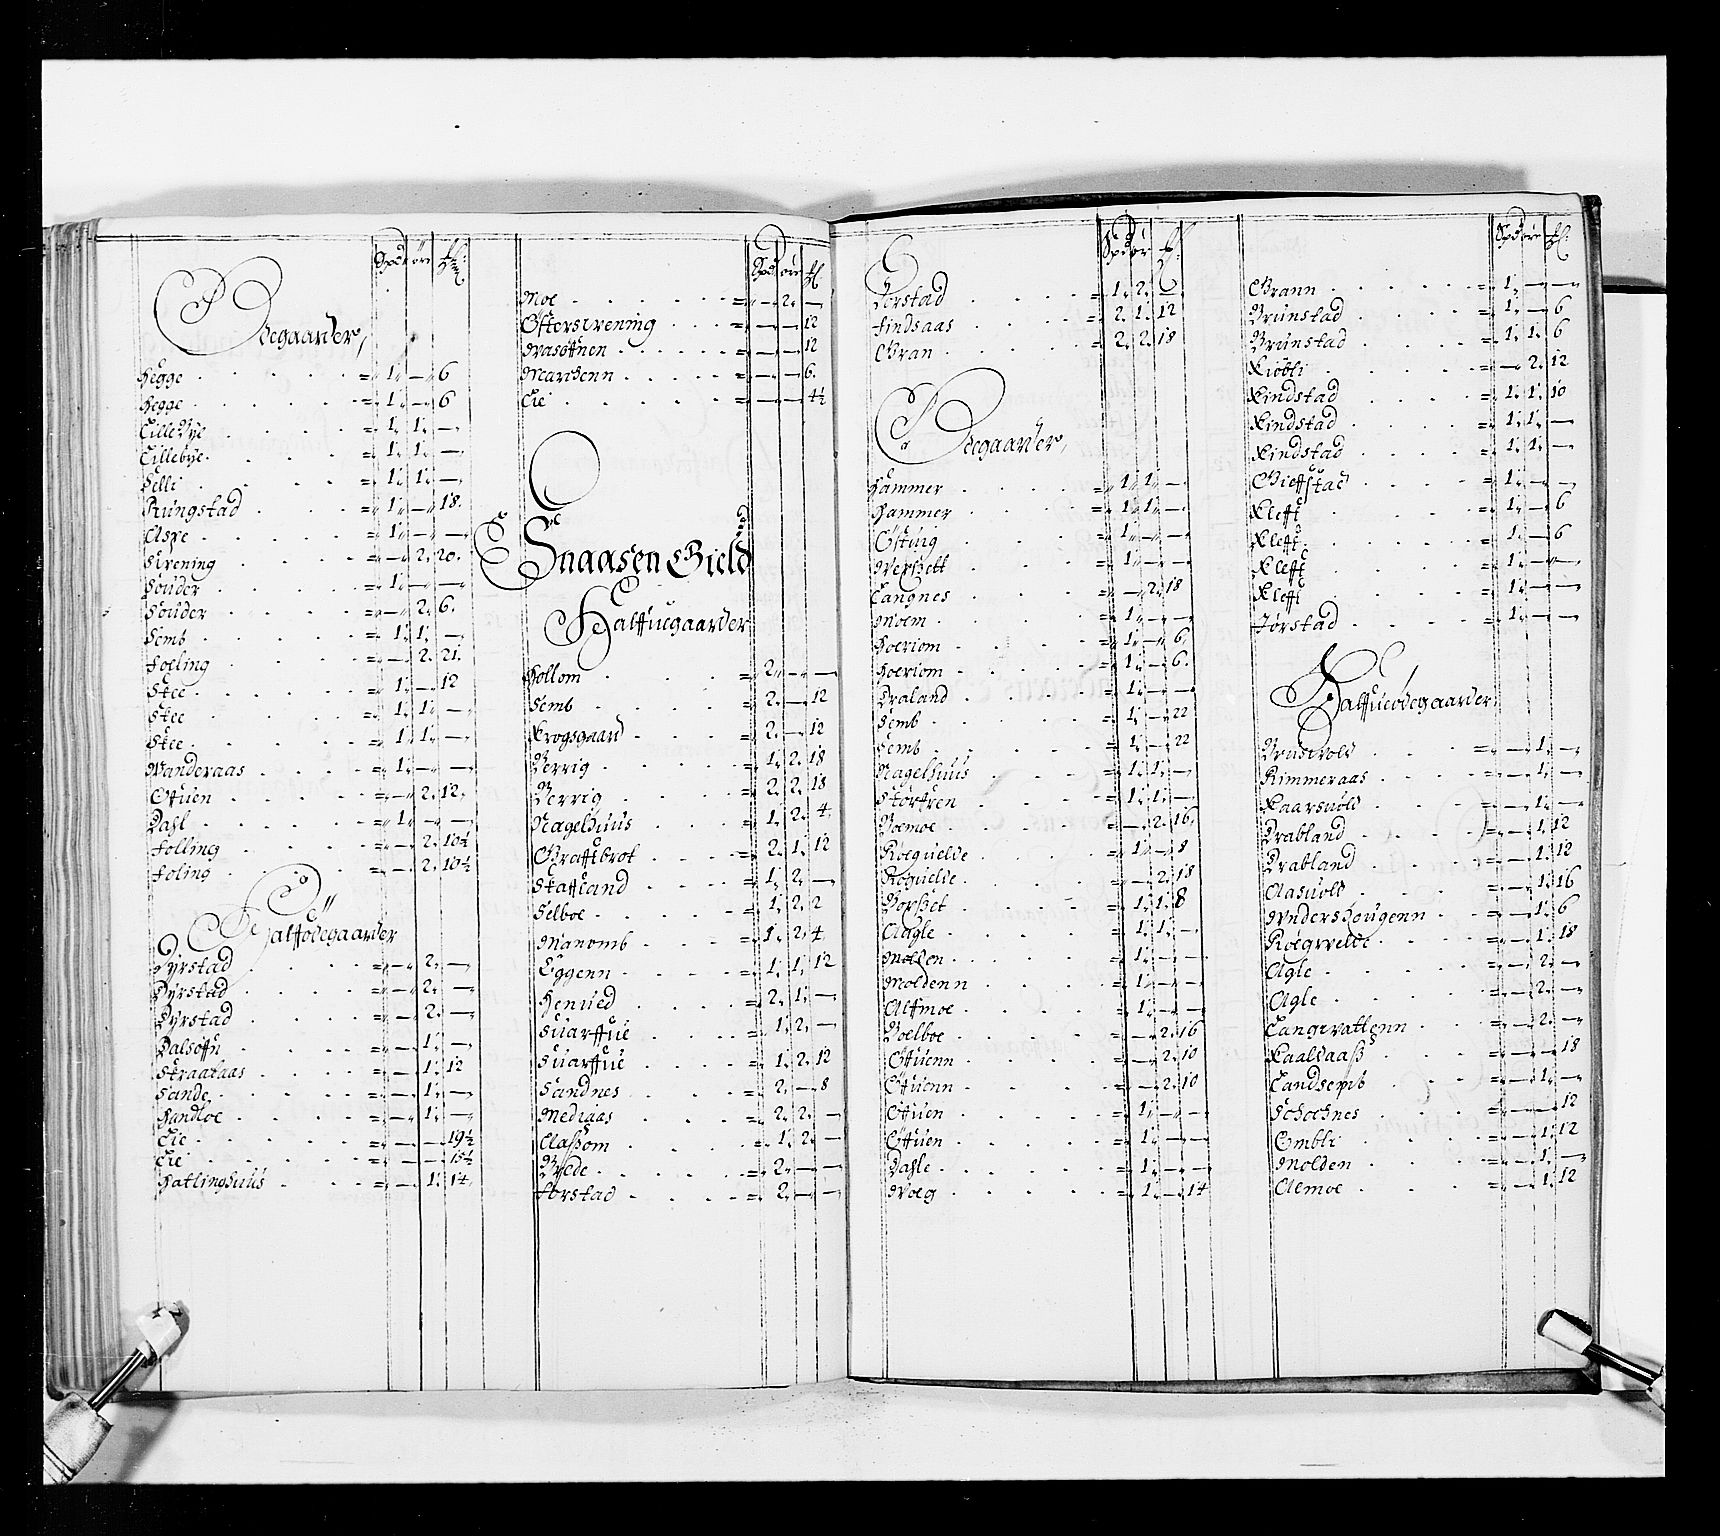 Spd ørt
Ødegaarder,
Hegge = 1. — 6
Hegge = 1. — 6
Lillebye = 1. 1. —
Lillebye = 1. 1. —
Selli = 1. 1. —
Rungstad = 1. — 18.
Aspe = 1. — —
Svening = — 2. 20.
Souder = 1. — —
Souder = — 2. 6.
Semb = 1. 1. —
Foeling = — 2. 21.
Stee = 1. — 12
Stee = 1. 1. —
Stee = 1. 1. —
Wanderaas = 1. — —
Ofuen = — 2. 12.
Dahl = 1. — —
Folling = — 2. 10½
Foling = — 2. 10½
Halfödegaarder
Dyrstad = — 2. —
Dyrstad = — 2. —
Dyrstad = — 2. —
Dalsöffn = — 1. —
Straataas = — 1. 12
Sande = — 1. —
Sandloe = — 1. —
Lie = — — 19½
Lie = — — 15½
Hatlinghuus = — 1. 14.
Spd ørt
Moe = — 2. —
Östersvening = — — 12
Mariaenn = — — 6.
Lie = — — 4½
Snaasen Gield
Halffuegaarder
Hollom = 2. — —
Semb = 2. — 12
Krogsgaard = 2. — 12
Verrig = 1. 2. 18
Verrig = 2. 2. 18
Nagelhuus = 1. 2. 4.
Grafftbrot = 2. 1. 12
Staffland = 1. 2. —
Selboe = 1. 2. 2
Manomb = 1. 2. 4
Eggenn = 1. 1. 12
Henued = 2. 1. —
Suarffue = 1. 2. —
Suarffue = 1. 2. 12
Sandnes = 2. — 8
Mediaas = 2. 2. —
Classom = 1. 2. —
Brede = 2. — —
Forstad = 2. — —
Spd ørt
Forstad = 1. 2. —
Findsaas = 2. 1. 12
Gran = 2. 2. 18
Ødegaarder,
Hammer = 1. 1. —
Hammer = 1. 1. —
Östuig = 1. — —
Langnes = — 2. 18
Moem = 1. — —
Hoeriom = 1. — 6.
Hoeriom = 1. — 6.
Draland = 1. — —
Semb = 1. — 22
Semb = 1. — 22
Nagelhuus = 1. 1. —
Storffren = 1. 1. —
Boemoe = — 2. 16.
Röeguelde = 1. — 8
Röguelde = — 2. 18
Borsset = 1. 1. 8
Aagle = 1. 1. —
Molden = 1. — —
Moldenn = 1. — —
Altmoe = 1. — —
Boelboe = — 2. 16
Ofuenn = — 2. 10
Ofuenn = — 2. 10
Ofuen = 1. — —
Ofuen = 1. — —
Dahle = 1. — —
Woeg = 1. — 14
Spd ørt
Grann = 1. — —
Brunstad = 1. — 6
Brunstad = 1. 1. 6
Kiöbli = — 2. 12
Kindstad = 1. 1. 10
Kindstad = 1. 1. —
Kindstad = 1. 1. —
Gieffstad = 1. — —
Kleffe = 1. — 6
Kleffe = 1. — 6
Kleffe = 1. — —
Kleffe = 1. — —
Jörstad = 1. — —
Halffueødegaarder.
Brustvold = — 1. —
Rimmeraas = — 1. —
Kaarsuold = — 1. —
Drabland = — 1. 12
Drabland = — 1. 12
Aasuold = — 1. 16
Wndershougenn = — 1. 6
Röegwelde = — 1. 18
Agle = — 2. —
Agle = — 2. —
Langevattenn = — 2. —
Kaaldaass = — — 18
Landsemb = — 1. —
Schochnes = — — 12
Embli = — 1. 12
Molden = — 1. —
Aemoe = — 1. 12